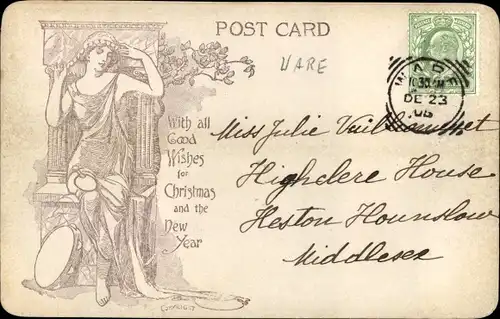 POST CARD
WARE
WARE
10.30 AM
DE 23
With all
Good
Wishes
for
Christmas
and the
New
Year
Miss Julie
Highclere House
Heston Hounslow
Middlesex